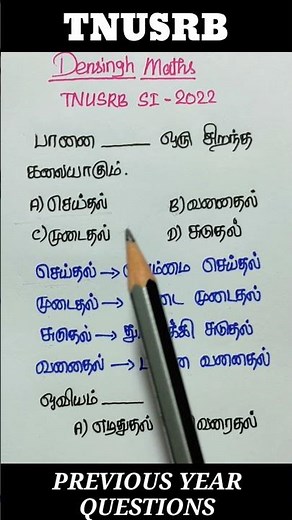 TNUSRB
Densingh Maths
TNUSRB SI - 2022
பானை _____ ஒரு சிறந்த
கலையாகும்.
A) செய்தல் B) வனைதல்
C) முடைதல் D) சுடுதல்
செய்தல் → செய்தல்
முடைதல் → முடைதல்
சுடுதல் → சுடுதல்
வனைதல் → வனைதல்
ஓவியம் _____
A) எழுதுதல் வரைதல்
PREVIOUS YEAR
QUESTIONS